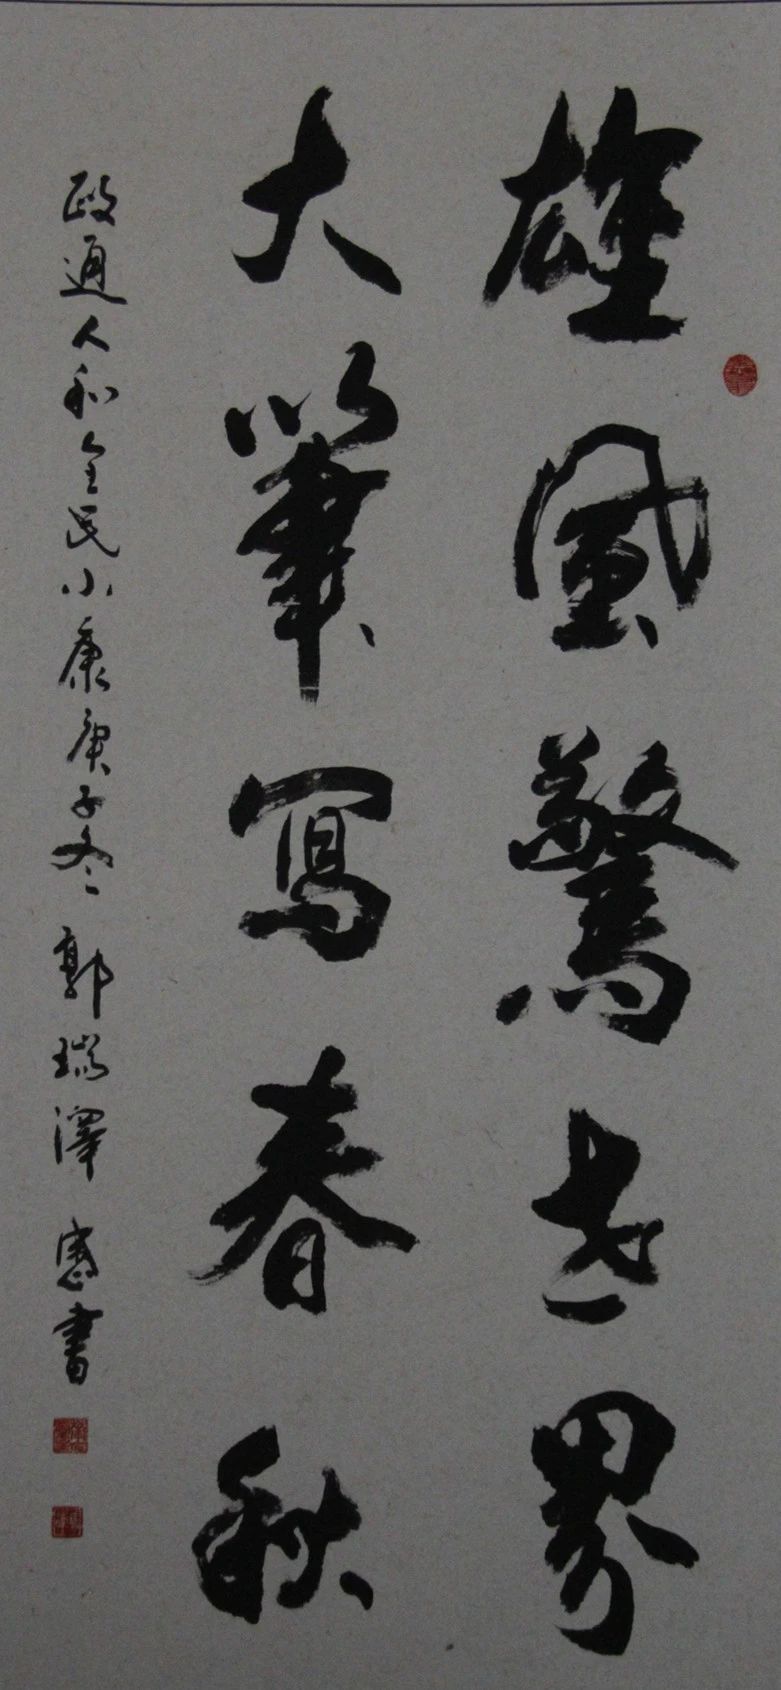 雄風驚世界
大筆寫春秋
政通人和全民小康庚子冬郭瑞澤書